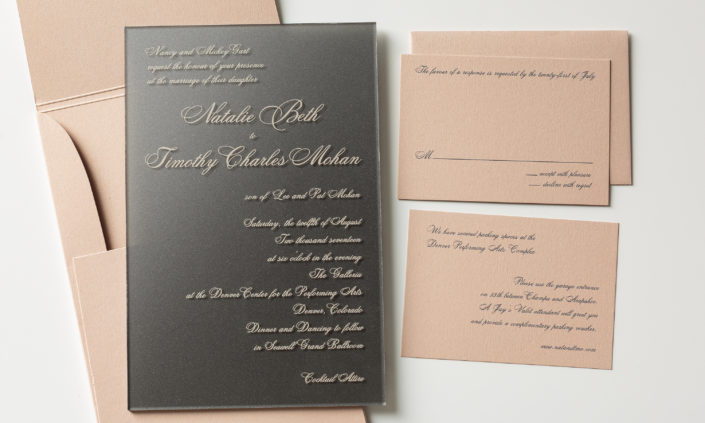 Nancy and Mickey Gart
request the honour of your presence
at the marriage of their daughter
Natalie Beth
to
Timothy Charles Mohan
son of Leo and Pat Mohan
Saturday, the twelfth of August
Two thousand seventeen
at six o'clock in the evening
The Galleria
at the Denver Center for the Performing Arts
Denver, Colorado
Dinner and Dancing to follow
in Seawell Grand Ballroom
Cocktail Attire
The favour of a response is requested by the twenty-first of July
M
accept with pleasure
decline with regret
We have secured parking spaces at the
Denver Performing Arts Complex
Please use the garage entrance
on 13th between Champa and Arapahoe.
A Jay's Valet attendant will greet you
and provide a complimentary parking voucher.